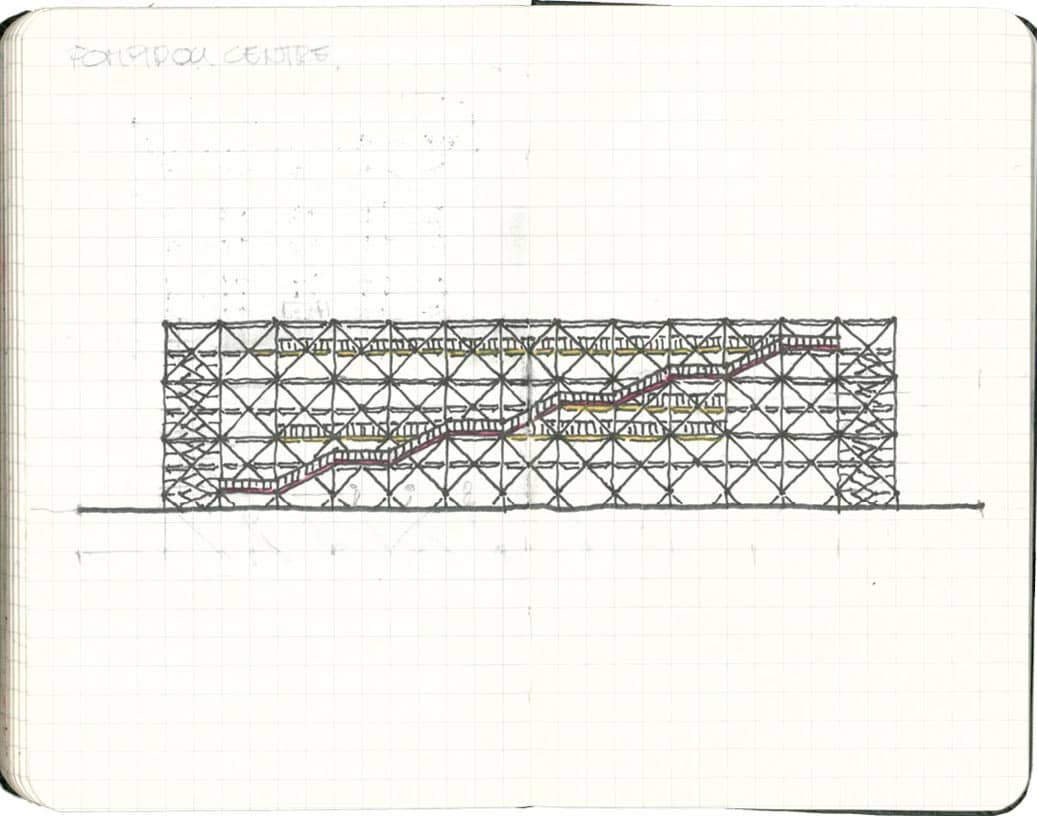 POMPIDOU CENTRE.